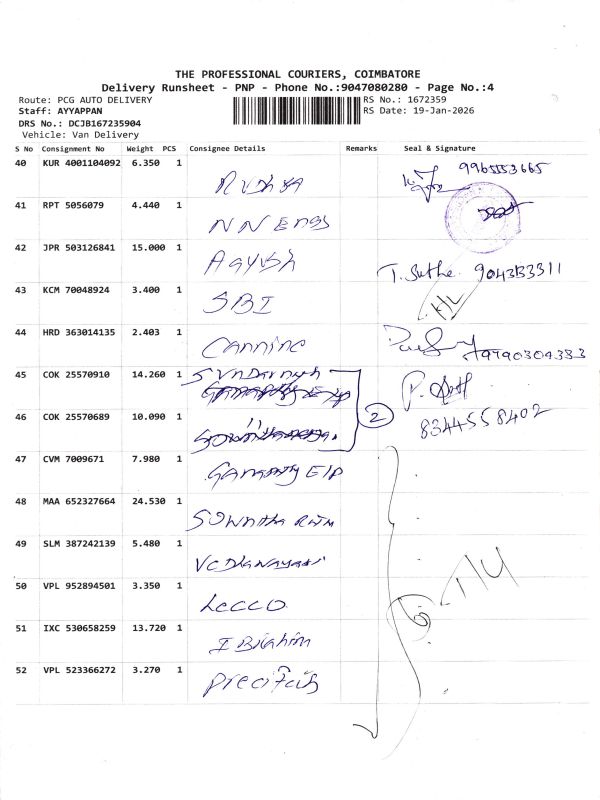 THE PROFESSIONAL COURIERS, COIMBATORE
Delivery Runsheet - PNP - Phone No.:9047080280 - Page No.:4
Route: PCG AUTO DELIVERY
RS No.: 1672359
Staff: AYYAPPAN
RS Date: 19-Jan-2026
DRS No.: DCJB167235904
Vehicle: Van Delivery
S No Consignment No Weight PCS Consignee Details Remarks Seal & Signature
40 KUR 4001104092 6.350 1 9965553665
41 RPT 5056079 4.440 1 NN Engs
42 JPR 503126841 15.000 1 Aayush T. Suthe. 9043133311
43 KCM 70048924 3.400 1 SBI
44 HRD 363014135 2.403 1 Cannine
45 COK 25570910 14.260 1
46 COK 25570689 10.090 1 2 8344558402
47 CVM 7009671 7.980 1
48 MAA 652327664 24.530 1
49 SLM 387242139 5.480 1
50 VPL 952894501 3.350 1 Lecco
51 IXC 530658259 13.720 1 IBrahim
52 VPL 523366272 3.270 1